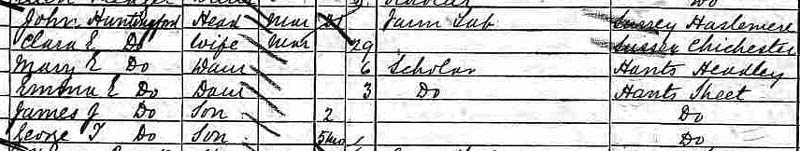 John Huntingford Head Mar Farm Lab Surrey Haslemere
Clara E Do Wife Mar 29 Sussex Chichester
Mary E Do Daur 6 Scholar Hants Headley
Emma E Do Daur 3 Do Hants Sheet
James J Do Son 2 Do
George T Do Son 5mo Do